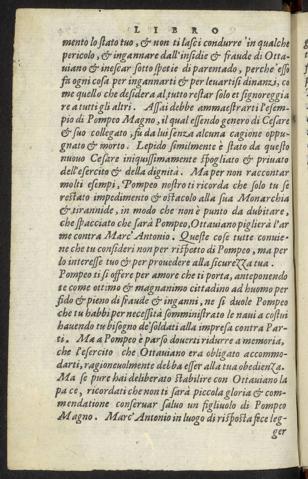 LIBRO
mento lo stato tuo, & non ti lasci condurre in qualche
pericolo, & ingannare dall'insidie & fraude di Otta-
uiano & inescar sotto spetie di parentado, perche esso
fa ogni cosa per ingannarti & per leuartisi dinanzi, co
me quello che desidera al tutto restar solo et signoreggia
re a tutti gli altri. Assai debbe ammaestrarti l'esem-
pio di Pompeo Magno, il qual essendo genero di Cesare
& suo collegato, fu da lui senza alcuna cagione oppu-
gnato & morto. Lepido similmente è stato da questo
nuouo Cesare iniquissimamente spogliato & priuato
dell'esercito & della dignità. Ma per non raccontar
molti esempi, Pompeo nostro ti ricorda che solo tu se
restato impedimento & ostacolo alla sua Monarchia
& tirannide, in modo che non è punto da dubitare,
che spacciato che sarà Pompeo, Ottauiano piglierà l'ar
me contra Marc' Antonio. Queste cose tutte conuie-
ne che tu consideri non per rispetto di Pompeo, ma per
lo interesse tuo & per prouedere alla sicurezza tua.
Pompeo ti si offere per amore che ti porta, anteponendo
te come ottimo & magnanimo cittadino ad huomo per
fido & pieno di fraude & inganni, ne si duole Pompeo
che tu habbi per necessità somministrato le naui a costui
hauendo tu bisogno de' soldati alla impresa contra Par-
ti. Ma a Pompeo è parso douerti ridurre a memoria,
che l'esercito che Ottauiano era obligato accommo-
darti, ragioneuolmente debba esser alla tua obedienza.
Ma se pure hai deliberato stabilire con Ottauiano la
pace, ricordati che non ti sarà piccola gloria & com-
mendatione conseruar saluo un figliuolo di Pompeo
Magno. Marc' Antonio in luogo di risposta fece leg-
ger